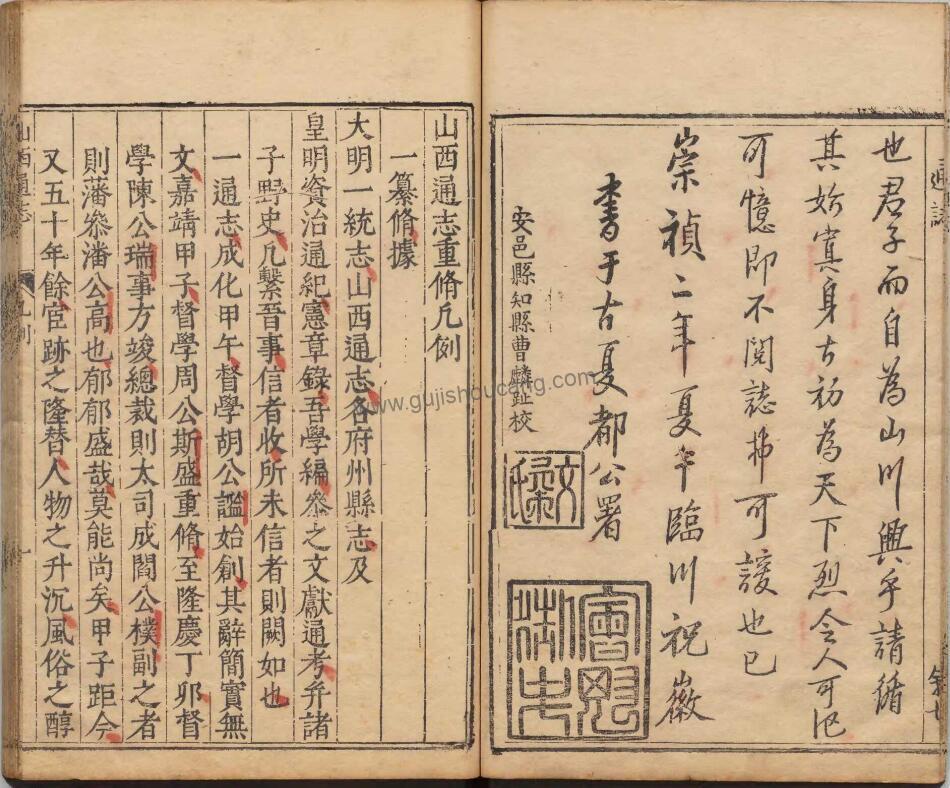 也君子而自為山川興乎請循
其始寘身古初為天下烈令人可
可憶即不閱誌
崇禎二年夏午臨川祝徽
書于古夏都公署
安邑縣知縣曹麟趾校
山西通志重脩凡例
一纂脩據
大明一統志山西通志各府州縣志及
皇明資治通紀憲章錄吾學編叅之文獻通考并諸
子野史凡繫晉事信者收所未信者則闕如也
一通志成化甲午督學胡公謐始創其辭簡實無
文嘉靖甲子督學周公斯盛重脩至隆慶丁卯督
學陳公瑞事方竣總裁則太司成閻公樸副之者
則藩叅潘公高也郁郁盛哉莫能尚矣甲子距今
又五十年餘宦跡之隆替人物之升沉風俗之醇
山西通志
凡例
一
www.gujishoucang.com